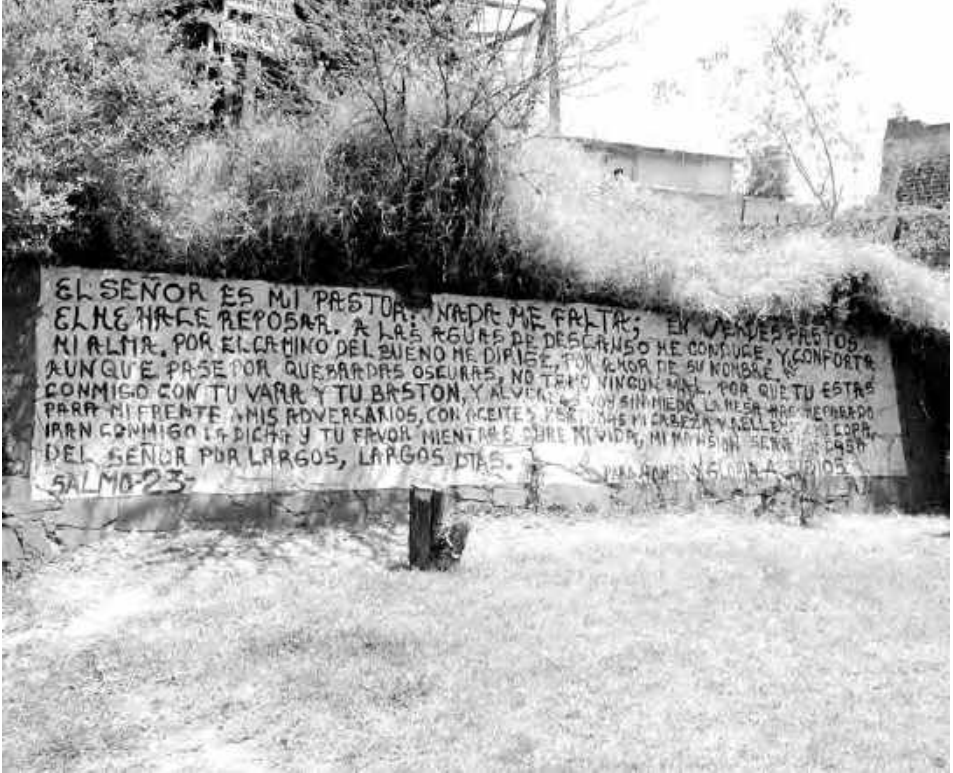 EL SEÑOR ES MI PASTOR: NADA ME FALTA; EN VERDES PASTOS
EL ME HACE REPOSAR. A LAS AGUAS DE DESCANSO ME CONDUCE, Y CONFORTA
MI ALMA. POR EL CAMINO DEL BUENO ME DIRIGE, POR AMOR DE SU NOMBRE
AUNQUE PASE POR QUEBRADAS OSCURAS, NO TEMO NINGUN MAL, POR QUE TU ESTAS
CONMIGO CON TU VARA Y TU BASTON, Y AL VERLAS VOY SIN MIEDO. LA MESA HAS PREPARADO
PARA MI FRENTE A MIS ADVERSARIOS, CON ACEITES PERFUMAS MI CABEZA Y RELLENAS COPA.
IRAN CONMIGO LA DICHA Y TU FAVOR MIENTRAS DURE MI VIDA, MI MANSION SERA CASA
DEL SEÑOR POR LARGOS, LARGOS DIAS.
SALMO-23-